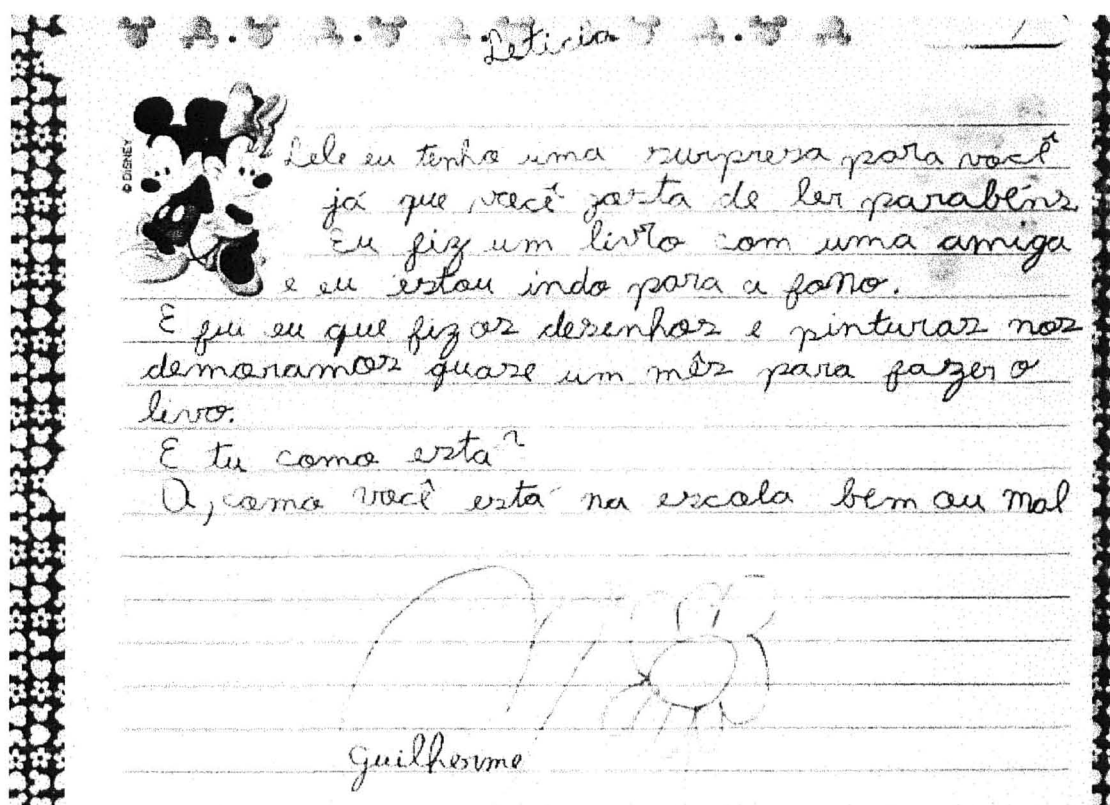 Leticia
© DISNEY
Lele eu tenho uma surpresa para você
já que você gosta de ler parabéns
Eu fiz um livro com uma amiga
e eu estou indo para a fono.
E fui eu que fiz os desenhos e pinturas nos
demoramos quase um mês para fazer o
livro.
E tu como esta?
O, como você está na escola bem ou mal
Guilherme